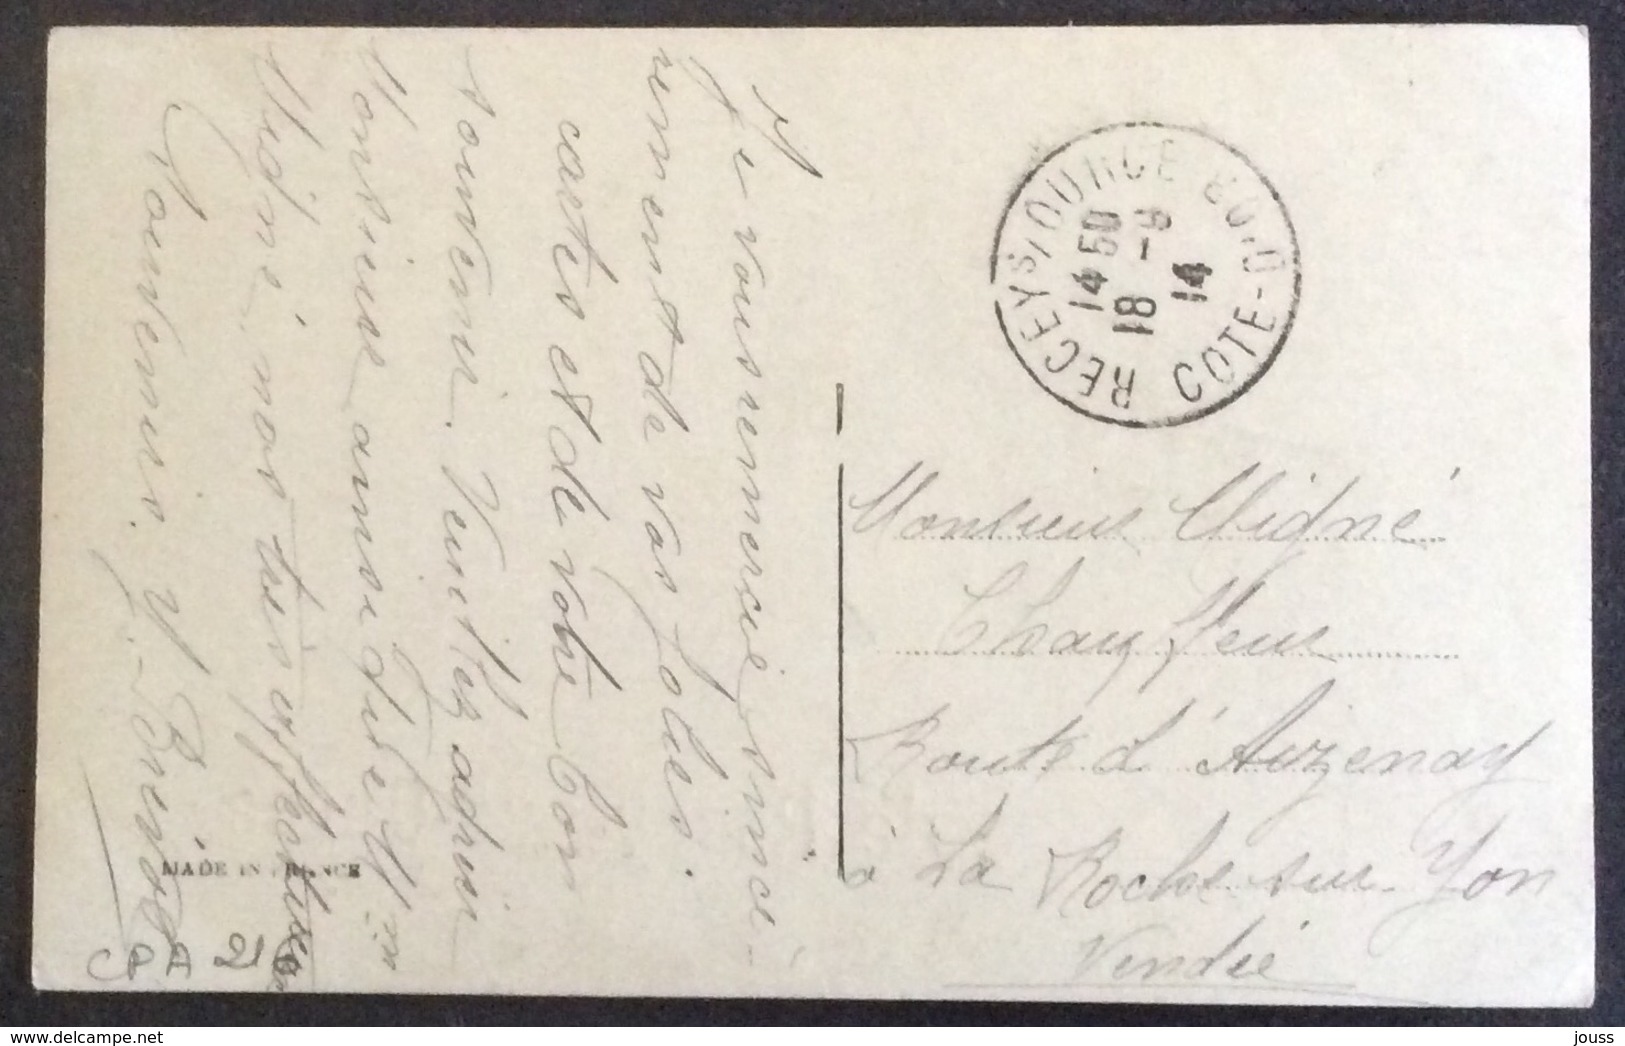 Je vous remercie sincé-
rement de vos jolies
cartes et de votre bon
souvenir. Veuillez adresser
Monsieur ainsi que Mm
Migné, mes très affectueux
souvenirs. Y.
MADE IN FRANCE
CPA 21
RECEY S/OURCE COTE-D'OR
14 50
18 - 9
14
Monsieur Migné
Chauffeur
Route d'Aizenay
à La Roche sur-Yon
Vendée
jouss